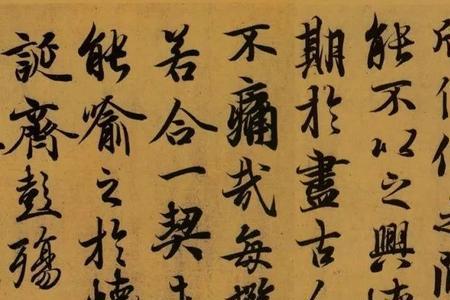 能不以之興懷
期於盡古人
不痛哉每攬
若合一契未
能喻之於懷
誕齊彭殤